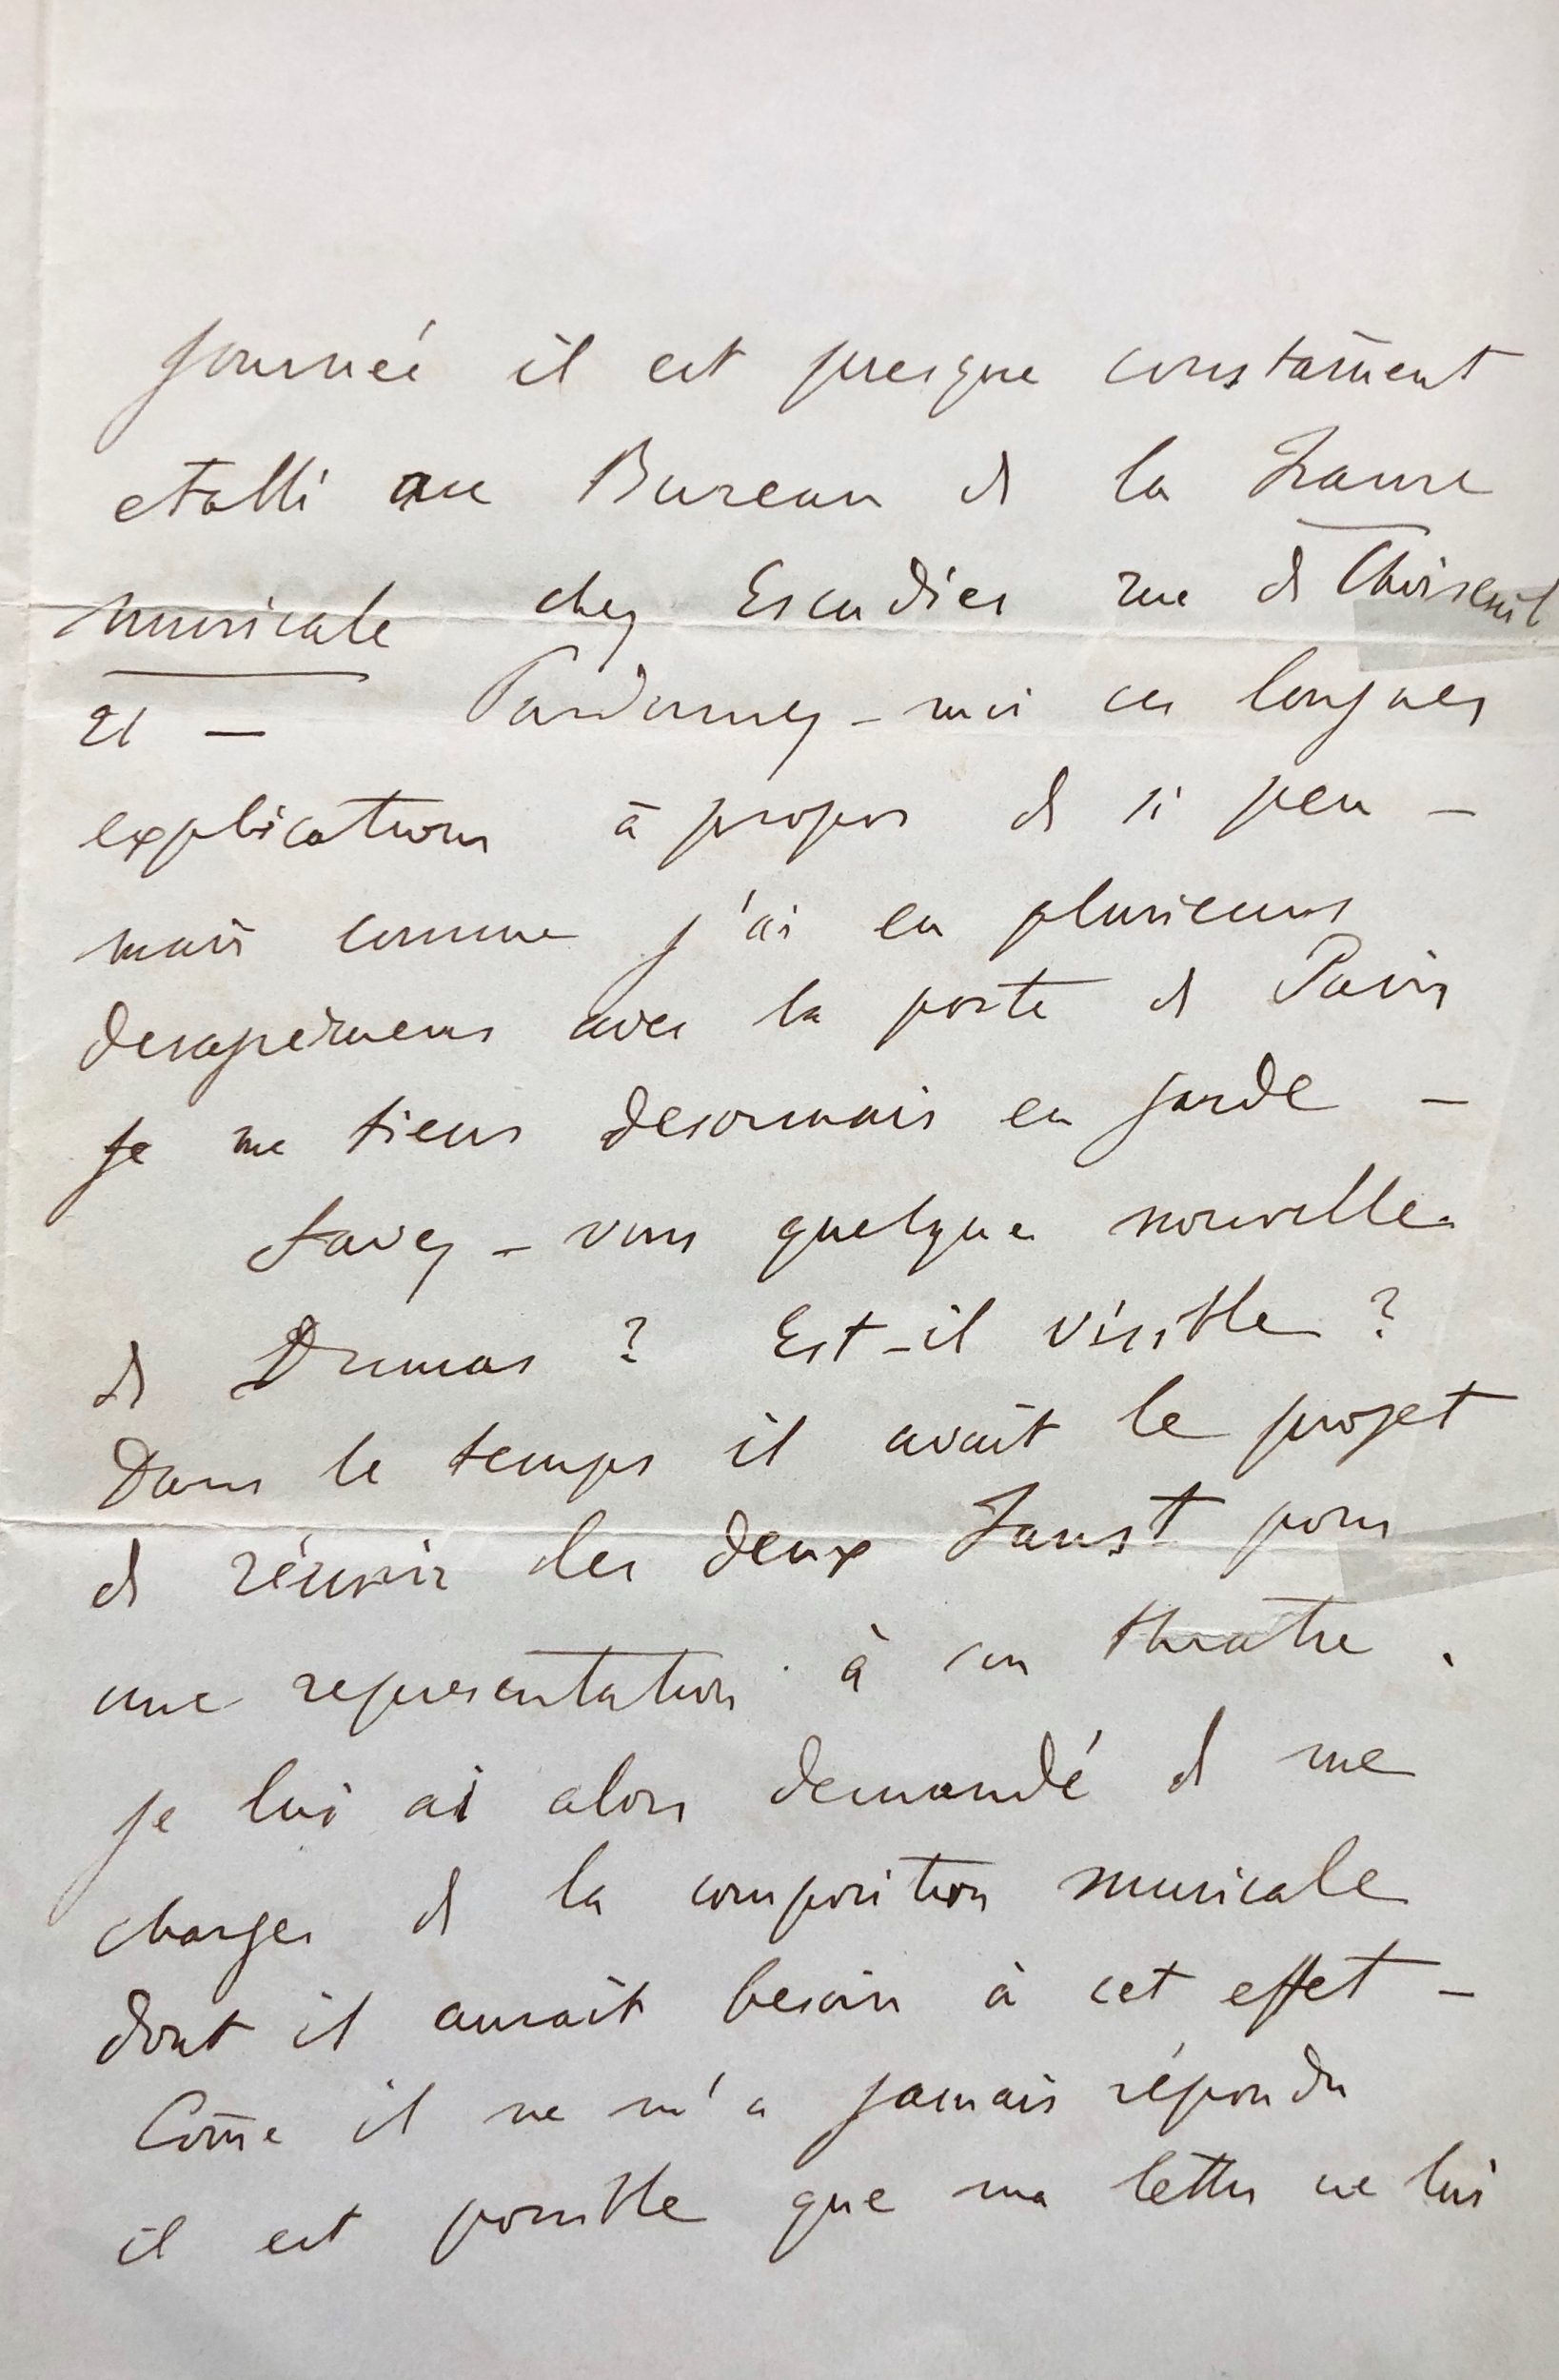 journée il est presque constam̄ent
etabli au Bureau de la France
musicale chez Escudier rue de Choiseuil
21 — Pardonnez-moi ces longues
explications à propos de si peu —
mais comme j'ai eu plusieurs
desagrémens avec la poste de Paris
je me tiens desormais en garde —
Savez-vous quelque nouvelle
de Dumas ? Est-il visible ?
Dans le temps il avait le projet
de réunir les deux Faust pour
une representation à son theatre .
je lui ai alors demandé de me
charger de la composition musicale
dont il aurait besoin à cet effet —
Com̄e il ne m'a jamais répondu
il est possible que ma lettre ne lui